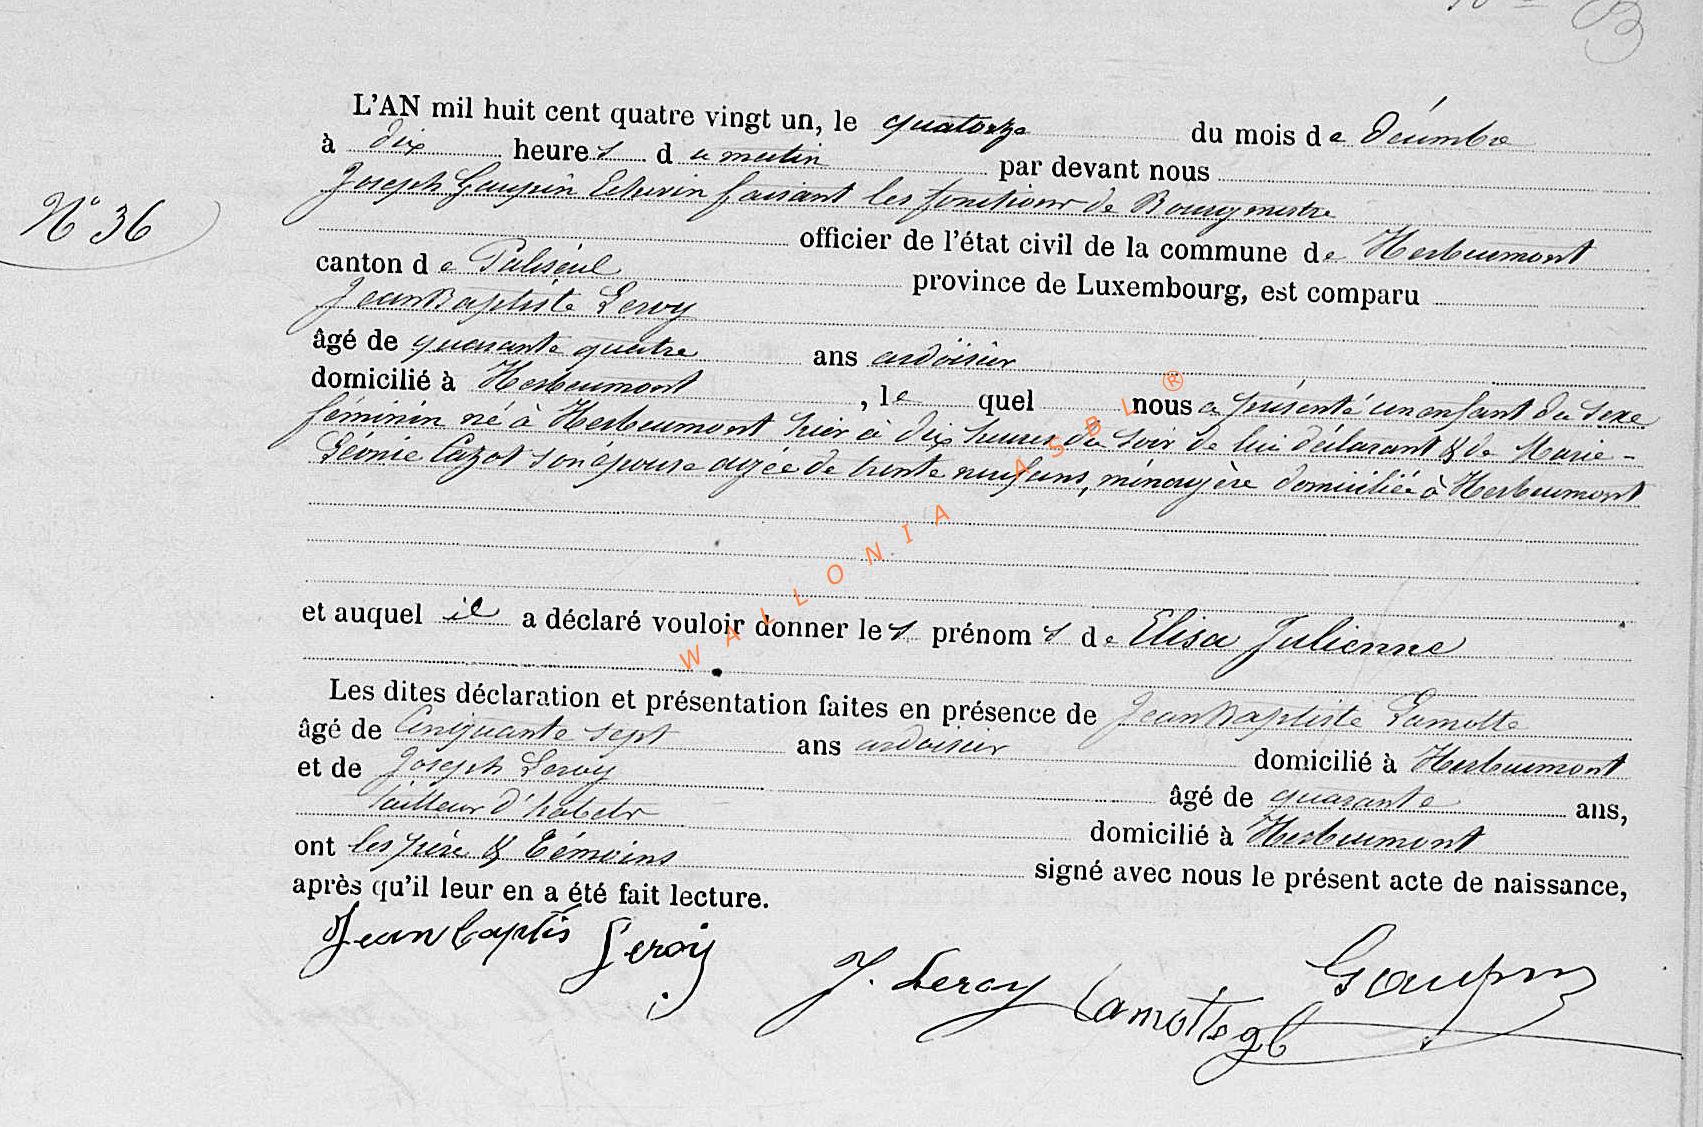 N° 36
L'AN mil huit cent quatre vingt un, le quatorze du mois de Décembre
à dix heures du matin par devant nous
Joseph Goupin Echevin faisant les fonctions de Bourgmestre
officier de l'état civil de la commune de Herbeumont
canton de Paliseul province de Luxembourg, est comparu
Jean Baptiste Leroy
âgé de quarante quatre ans ardoisier
domicilié à Herbeumont, le quel nous a présenté un enfant du sexe
féminin né à Herbeumont hier à dix heures du soir de lui déclarant & de Marie-
Léonie Cazot son épouse agée de trente neuf ans, ménagère domiciliée à Herbeumont
et auquel il a déclaré vouloir donner les prénoms de Elisa Julienne
Les dites déclaration et présentation faites en présence de Jean Baptiste Lamotte
âgé de Cinquante sept ans ardoisier domicilié à Herbeumont
et de Joseph Leroy âgé de quarante ans,
tailleur d'habits domicilié à Herbeumont
ont les père & témoins signé avec nous le présent acte de naissance,
après qu'il leur en a été fait lecture.
Jean baptis Leroy
J. Leroy Lamotte Goupin
WALLONIA ASBL ®